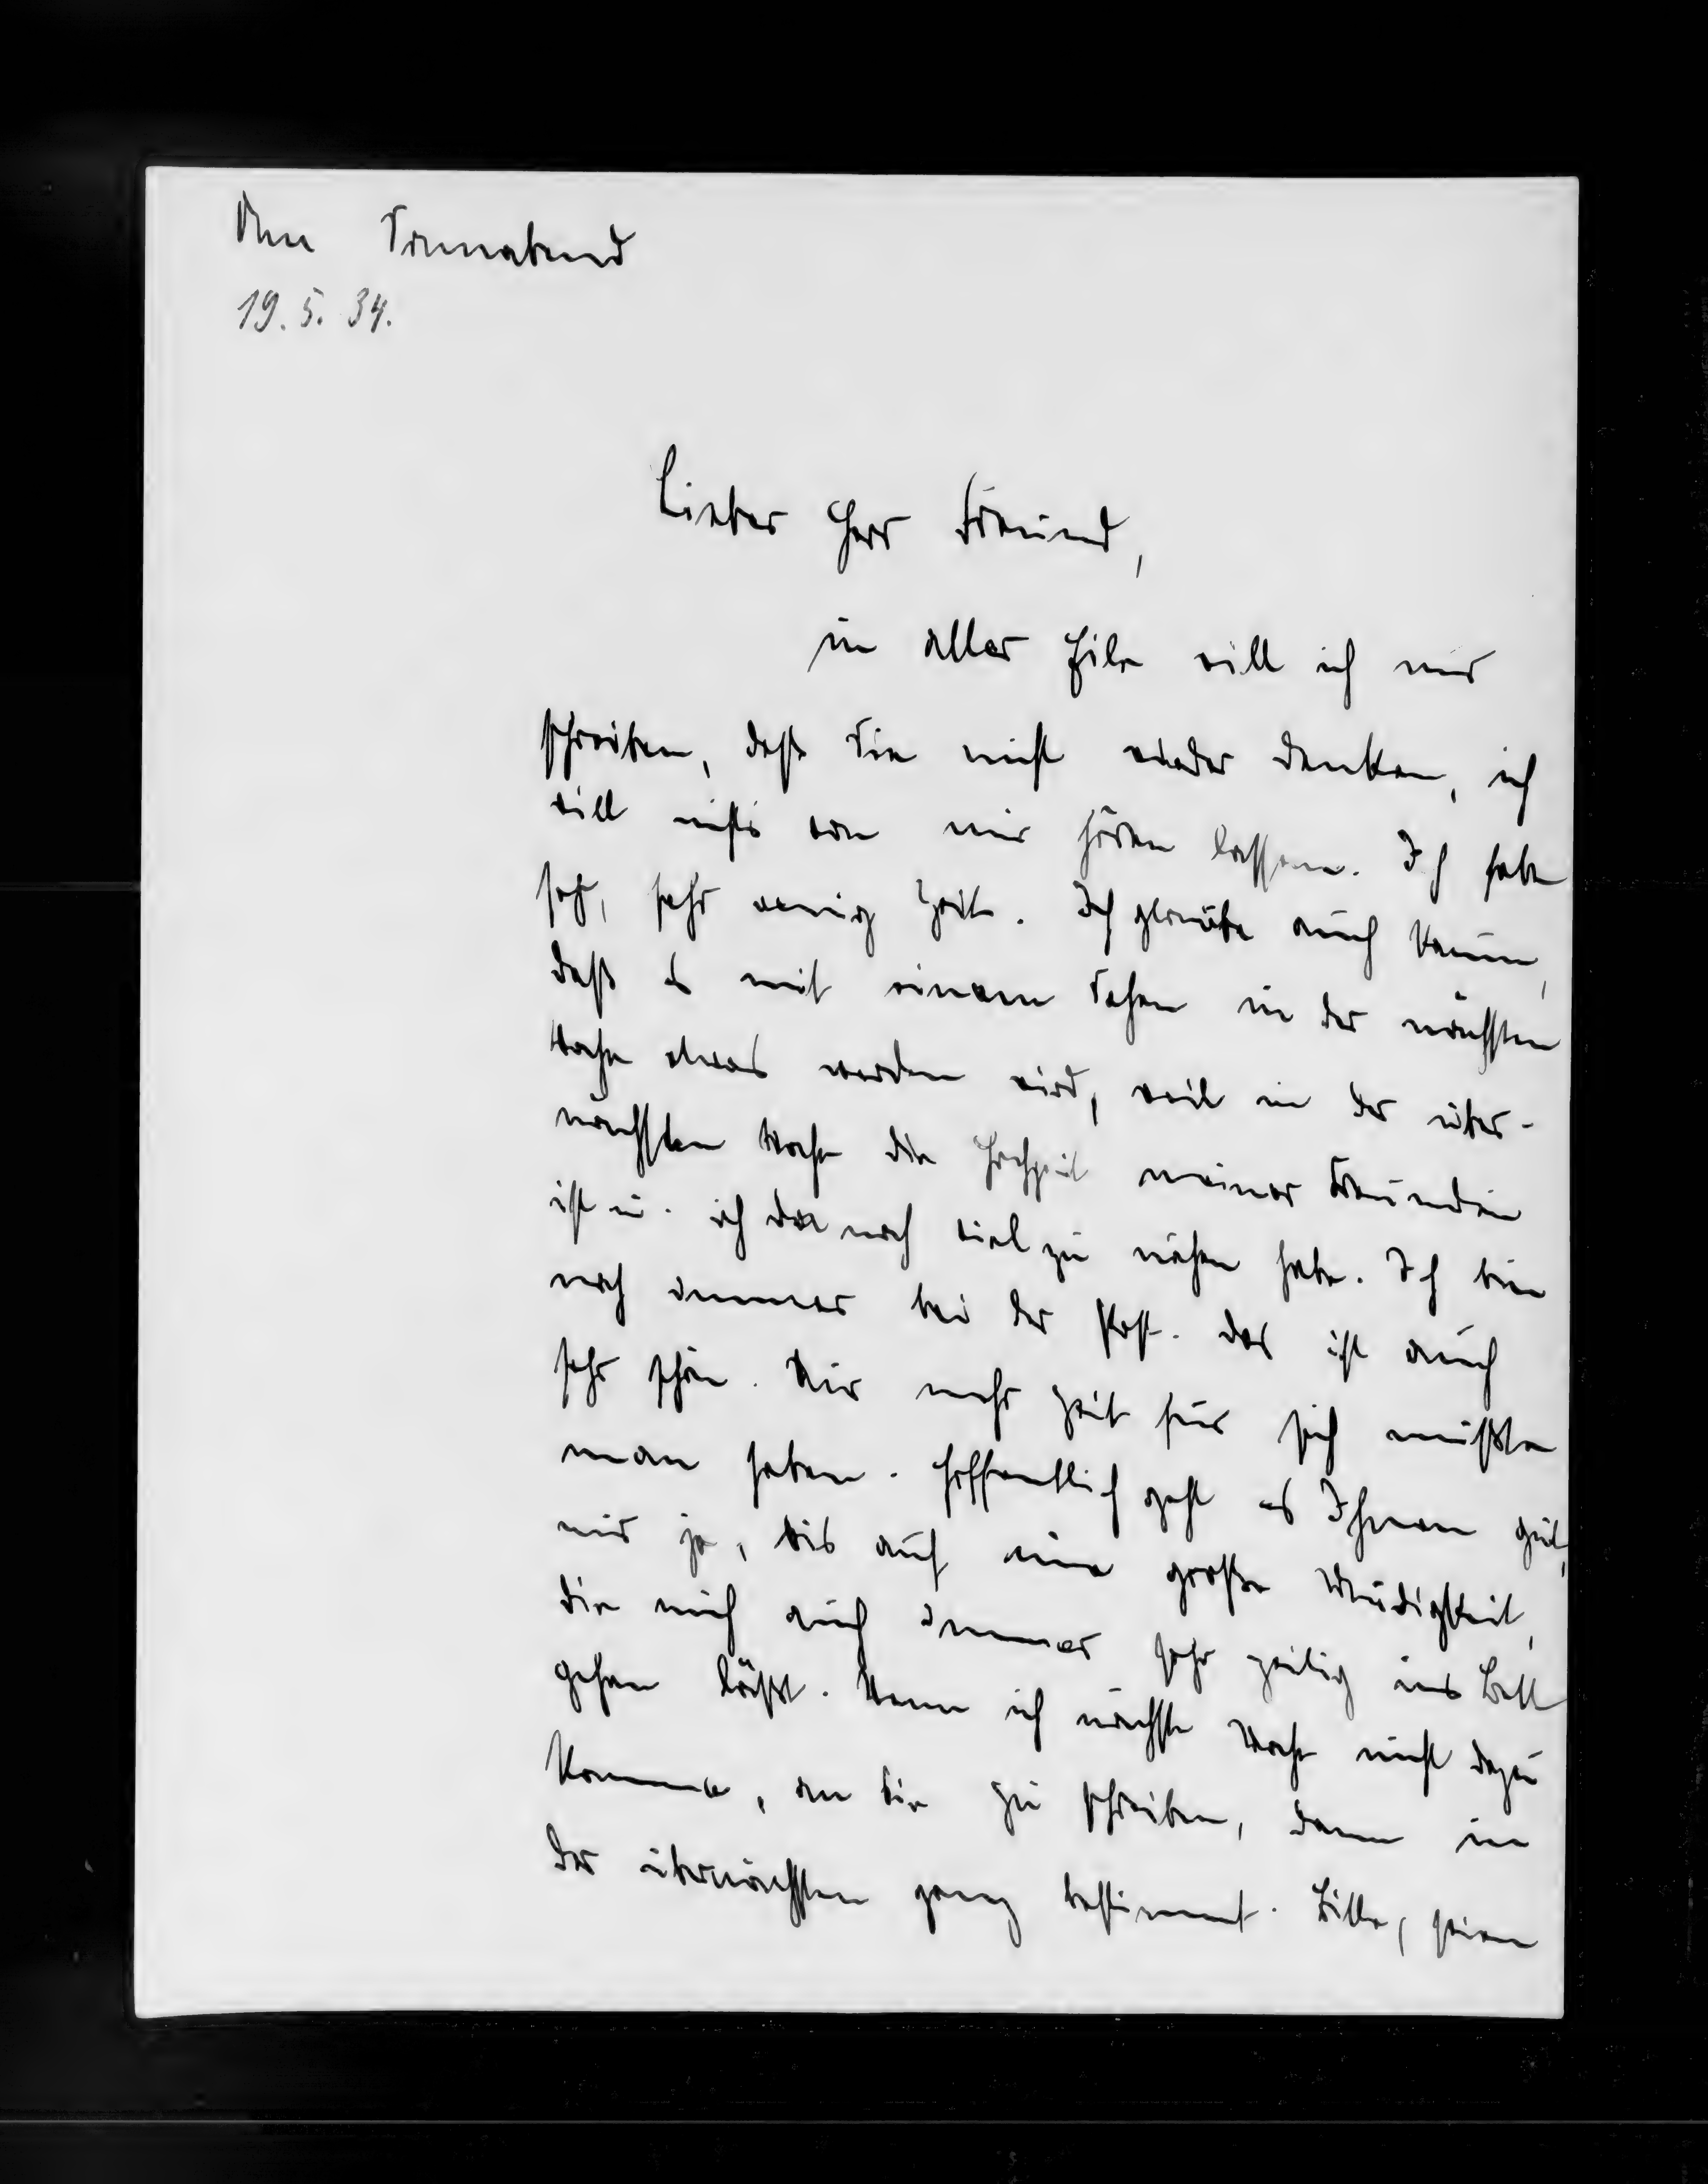 Am Sonnabend
19. 5. 34.
Lieber Herr Freund,
in aller Eile will ich nur
schreiben, daß Sie nicht wieder denken, ich
will nichts von mir hören lassen. Ich habe
sehr, sehr wenig Zeit. Ich glaube auch kaum,
daß es mit einem Sehen in der nächsten
Woche etwas werden wird, weil in der über-
nächsten Woche die Hochzeit meiner Freundin
ist u. ich da noch viel zu nähen habe. Ich bin
noch immer bei der Post. Das ist auch
sehr schön. Nur mehr Zeit für sich müßte
man haben. Hoffentlich geht es Ihnen gut,
mir ja, bis auf eine große Müdigkeit,
die mich auch immer sehr zeitig ins Bett
gehen läßt. Wenn ich nächste Woche nicht dazu
komme, an Sie zu schreiben, dann in
der übernächsten ganz bestimmt. Bitte, seien